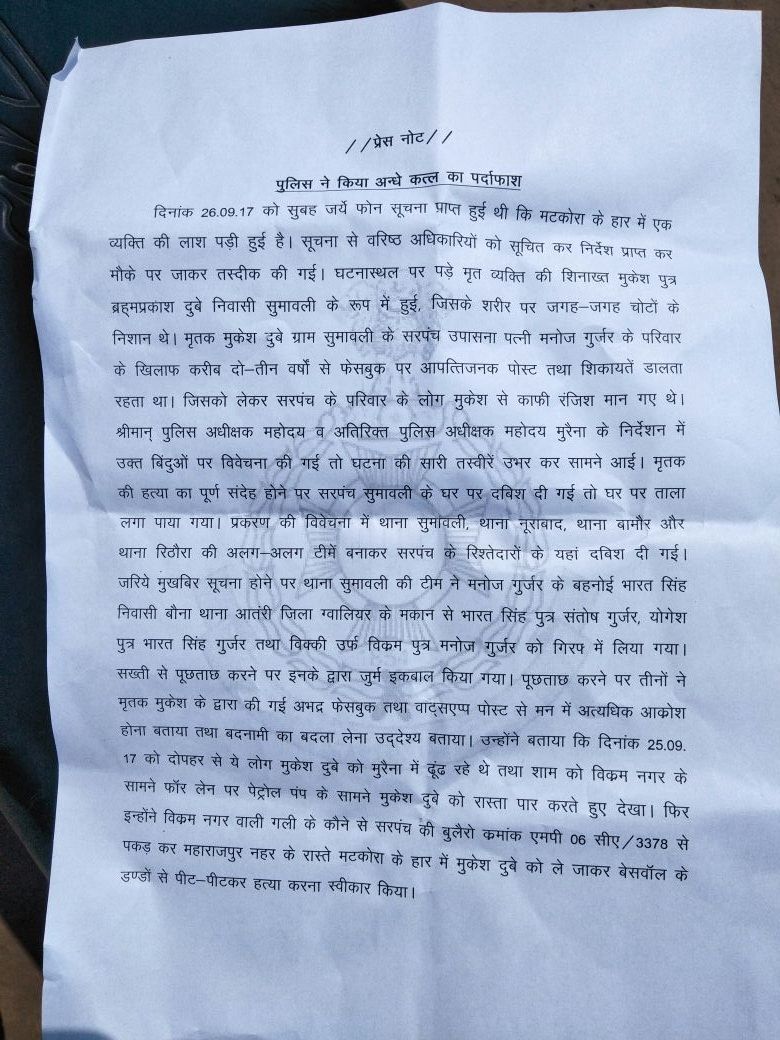 //प्रेस नोट//
पुलिस ने किया अन्धे कत्ल का पर्दाफाश
दिनांक 26.09.17 को सुबह जर्ये फोन सूचना प्राप्त हुई थी कि मटकोरा के हार में एक
व्यक्ति की लाश पड़ी हुई है। सूचना से वरिष्ठ अधिकारियों को सूचित कर निर्देश प्राप्त कर
मौके पर जाकर तस्दीक की गई। घटनास्थल पर पड़े मृत व्यक्ति की शिनाख्त मुकेश पुत्र
ब्रह्मप्रकाश दुबे निवासी सुमावली के रूप में हुई, जिसके शरीर पर जगह–जगह चोटों के
निशान थे। मृतक मुकेश दुबे ग्राम सुमावली के सरपंच उपासना पत्नी मनोज गुर्जर के परिवार
के खिलाफ करीब दो–तीन वर्षों से फेसबुक पर आपत्तिजनक पोस्ट तथा शिकायतें डालता
रहता था। जिसको लेकर सरपंच के परिवार के लोग मुकेश से काफी रंजिश मान गए थे।
श्रीमान् पुलिस अधीक्षक महोदय व अतिरिक्त पुलिस अधीक्षक महोदय मुरैना के निर्देशन में
उक्त बिंदुओं पर विवेचना की गई तो घटना की सारी तस्वीरें उभर कर सामने आई। मृतक
की हत्या का पूर्ण संदेह होने पर सरपंच सुमावली के घर पर दबिश दी गई तो घर पर ताला
लगा पाया गया। प्रकरण की विवेचना में थाना सुमावली, थाना नूराबाद, थाना बामौर और
थाना रिठौरा की अलग–अलग टीमें बनाकर सरपंच के रिश्तेदारों के यहां दबिश दी गई।
जरिये मुखबिर सूचना होने पर थाना सुमावली की टीम ने मनोज गुर्जर के बहनोई भारत सिंह
निवासी बौना थाना आतंरी जिला ग्वालियर के मकान से भारत सिंह पुत्र संतोष गुर्जर, योगेश
पुत्र भारत सिंह गुर्जर तथा विक्की उर्फ विक्रम पुत्र मनोज गुर्जर को गिरफ में लिया गया।
सख्ती से पूछताछ करने पर इनके द्वारा जुर्म इकबाल किया गया। पूछताछ करने पर तीनों ने
मृतक मुकेश के द्वारा की गई अभद्र फेसबुक तथा वाट्सएप्प पोस्ट से मन में अत्यधिक आक्रोश
होना बताया तथा बदनामी का बदला लेना उद्देश्य बताया। उन्होंने बताया कि दिनांक 25.09.
17 को दोपहर से ये लोग मुकेश दुबे को मुरैना में ढूंढ रहे थे तथा शाम को विक्रम नगर के
सामने फॉर लेन पर पेट्रोल पंप के सामने मुकेश दुबे को रास्ता पार करते हुए देखा। फिर
इन्होंने विक्रम नगर वाली गली के कौने से सरपंच की बुलैरो कमांक एमपी 06 सीए/3378 से
पकड़ कर महाराजपुर नहर के रास्ते मटकोरा के हार में मुकेश दुबे को ले जाकर बेसवॉल के
डण्डों से पीट–पीटकर हत्या करना स्वीकार किया।